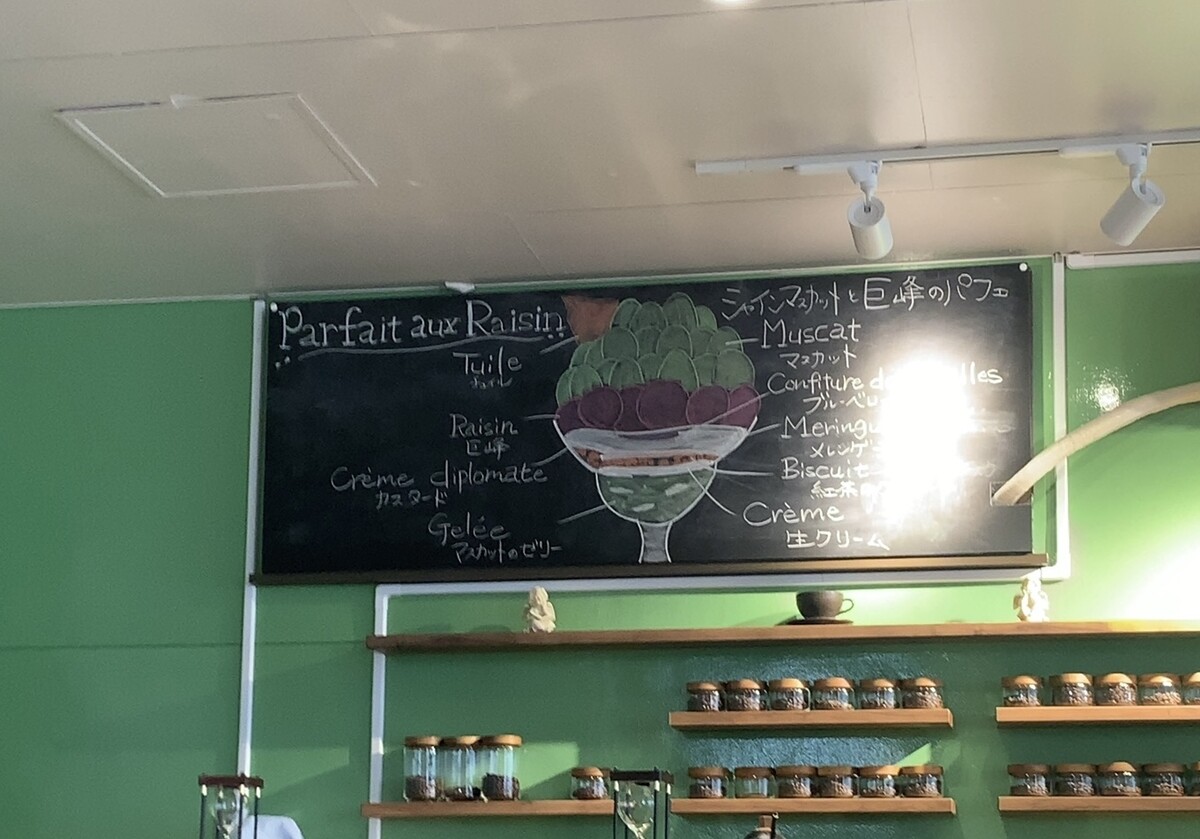 Parfait aux Raisin
Tuile
チュイル
Raisin
巨峰
Crème diplomate
カスタード
Gelée
マスカットのゼリー
シャインマスカットと巨峰のパフェ
Muscat
マスカット
Confiture
ブルーベリ
Meringu
メレンゲ
Biscuit
紅茶
Crème
生クリーム